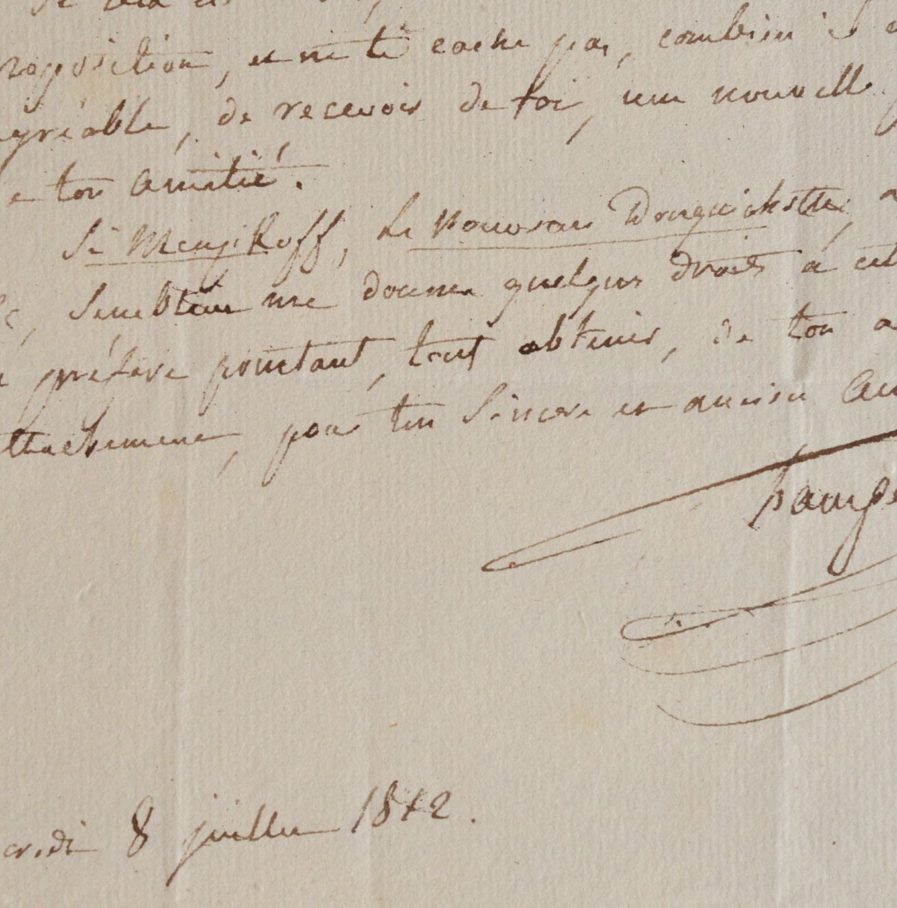 roposition, et ne te cache pas, combien il
gréable, de recevoir de toi, une nouvelle
e ton amitié.
Si Menzikoff, Le nouveau Donquichotte,
semblent me donner quelques droits à cet
préfère pourtant, tout obtenir, de ton a
ttachement, pour ton Sincere et ancien am
Champe
credi 8 juillet 1812.